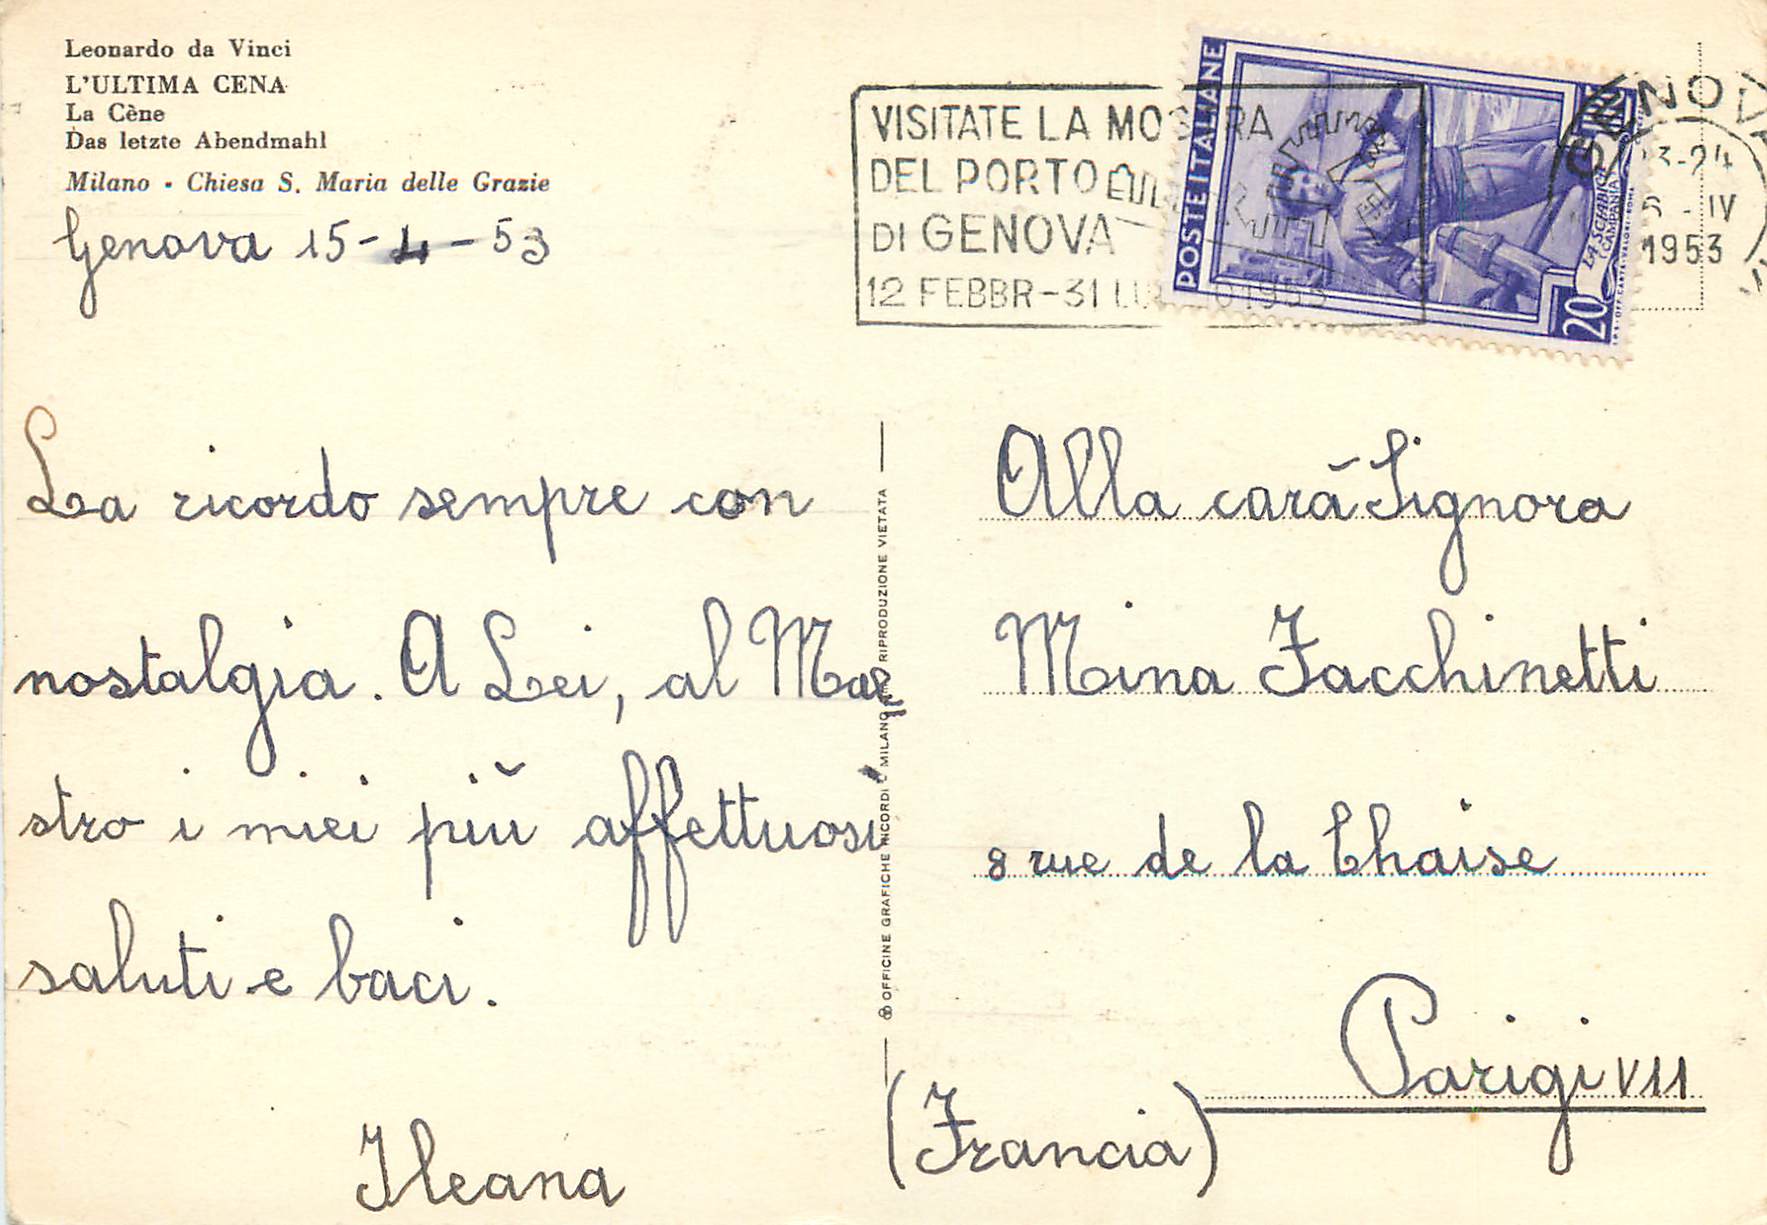 Leonardo da Vinci
L'ULTIMA CENA
La Cène
Das letzte Abendmahl
Milano - Chiesa S. Maria delle Grazie
Genova 15-4-53
La ricordo sempre con
nostalgia. A Lei, al Mae
stro i miei più affettuosi
saluti e baci.
Ileana
OFFICINE GRAFICHE RICORDI MILANO RIPRODUZIONE VIETATA
VISITATE LA MOSTRA
DEL PORTO
DI GENOVA
12 FEBBR-31 1953
POSTE ITALIANE
LA SCIABICA
CAMPANIA
20
GENOVA
3-24
IV
1953
Alla cara Signora
Mina Facchinetti
8 rue de la Chaise
Parigi VII
(Francia)